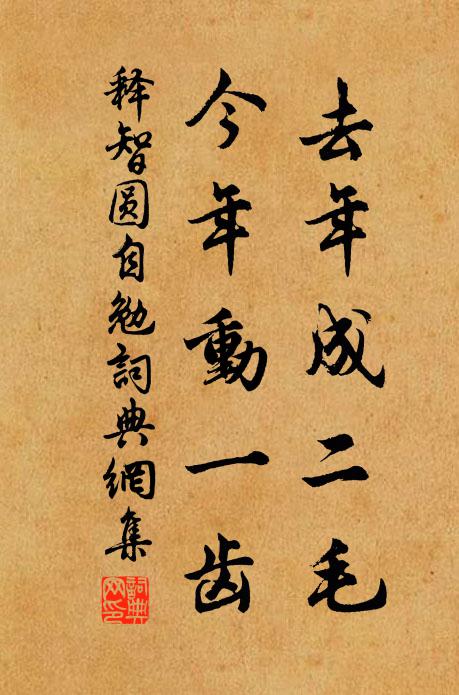 去年成二毛
今年動一齿
释智圆自勉詞典網集
詞典网印